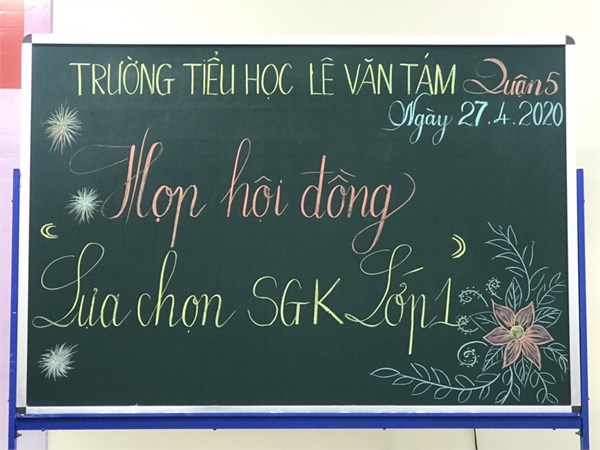 TRƯỜNG TIỂU HỌC LÊ VĂN TÁM Quận 5
Ngày 27.4.2020
Họp hội đồng
Lựa chọn SGK Lớp 1